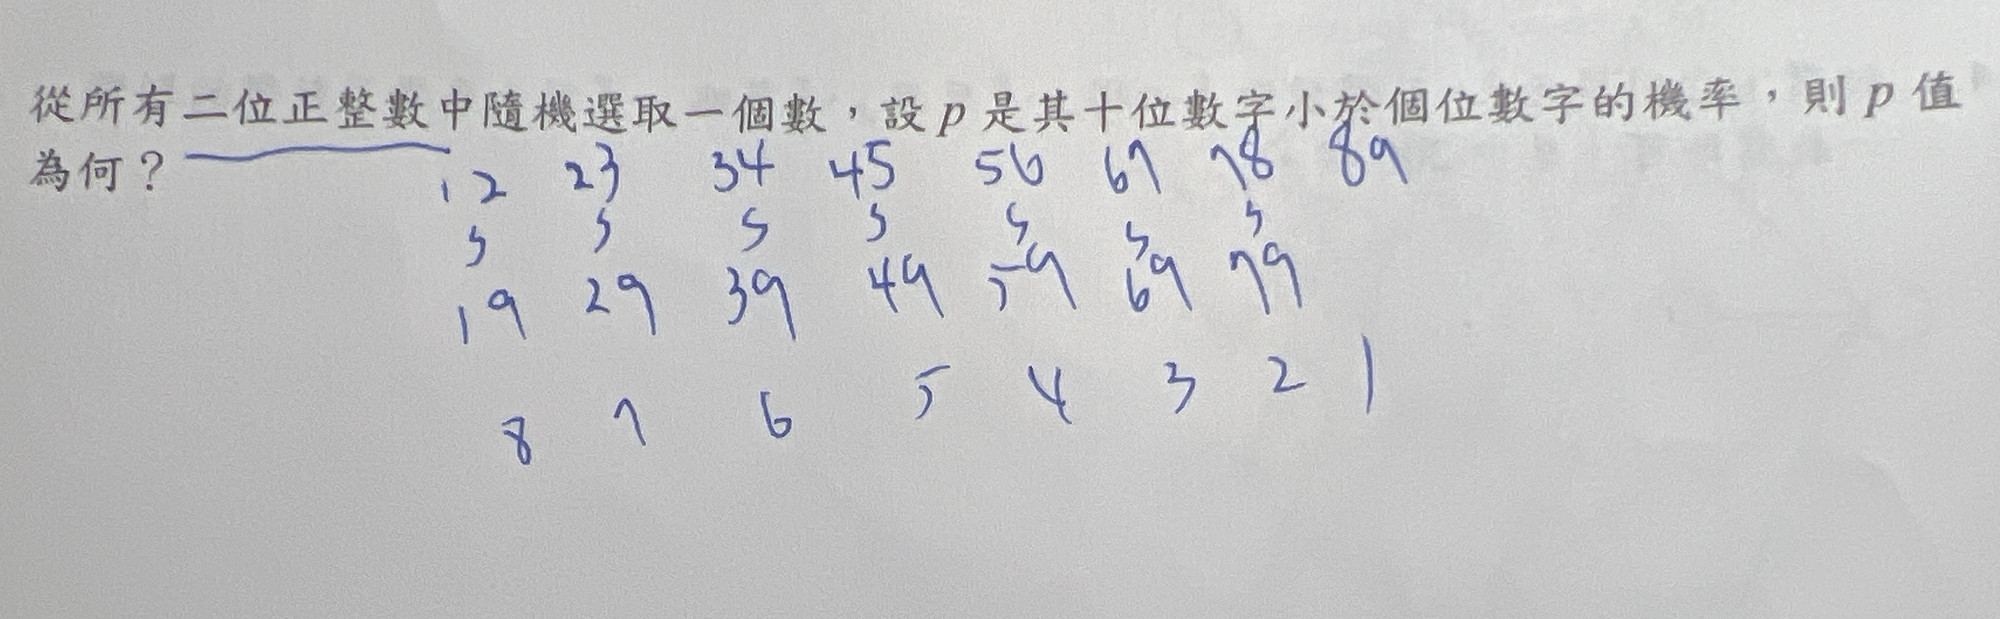 從所有二位正整數中隨機選取一個數，設 p 是其十位數字小於個位數字的機率，則 p 值
為何？
12 23 34 45 56 67 78 89
19 29 39 49 59 69 79
8 7 6 5 4 3 2 1